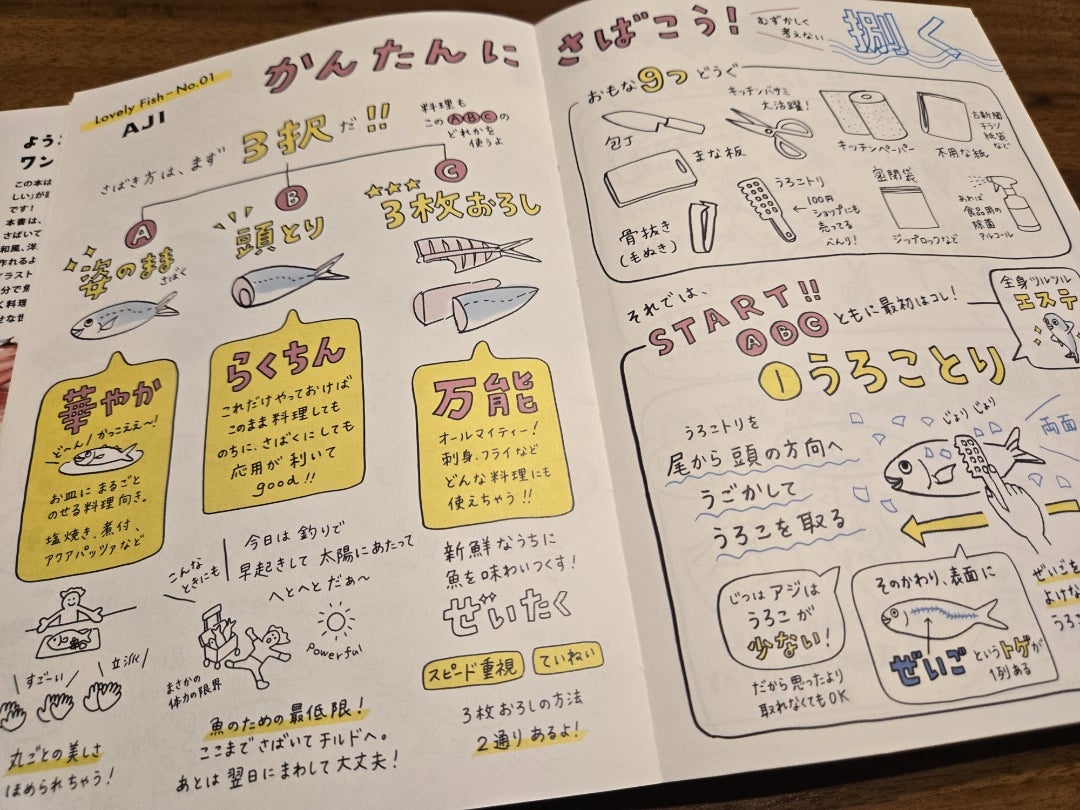 Lovely Fish-No.01
AJI
かんたんに
さばき方は、まず
3択だ!!
料理も
このABCの
どれかを
使うよ
A
姿のまま
さばく
華やか
ど〜ん/かっこええ〜!
お皿にまるごと
のせる料理向き。
塩焼き、煮付、
アクアパッツァなど
すごーい/
立派/
丸ごとの美しさ
ほめられちゃう!
B
頭とり
らくちん
これだけやっておけば
このまま料理しても
のちに、さばくにしても
応用が利いて
good!!
こんな
ときにも
今日は釣りで
早起きして太陽にあたって
へとへとだぁ〜
Powerful
まさかの
体力の限界
魚のための最低限!
ここまでさばいてチルドへ。
あとは翌日にまわして大丈夫!
C
3枚おろし
万能
オールマイティー!
刺身、フライなど
どんな料理にも
使えちゃう!!
新鮮なうちに
魚を味わいつくす!
ぜいたく
スピード重視
ていねい
3枚おろしの方法
2通りあるよ!
よう
ワン
この本は
しい」が
です!
本書は、
さばいて
和風、洋
作れるよ
イラスト
分で魚
く料理
せなせ
さばこう!
むずかしく
考えない
捌く
おもな9つどうぐ
包丁
まな板
キッチンバサミ
大活躍!
キッチンペーパー
不用な紙
古新聞
チラシ
紙袋
など
骨抜き
(毛ぬき)
うろこトリ
←100円
ショップにも
売ってる
べんり!
密閉袋
ジップロックなど
あれば
食品用の
除菌
アルコール
それでは、
START!!
ABCともに最初はコレ!
全身ツルツル
エステ
①うろことり
うろこトリを
尾から頭の方向へ
うごかして
うろこを取る
じょりじょり
両面
じつはアジは
うろこが
少ない!
だから思ったより
取れなくてもOK
そのかわり、表面に
ぜいごというトゲが
1列ある
ぜいごを
よけな
うろこ